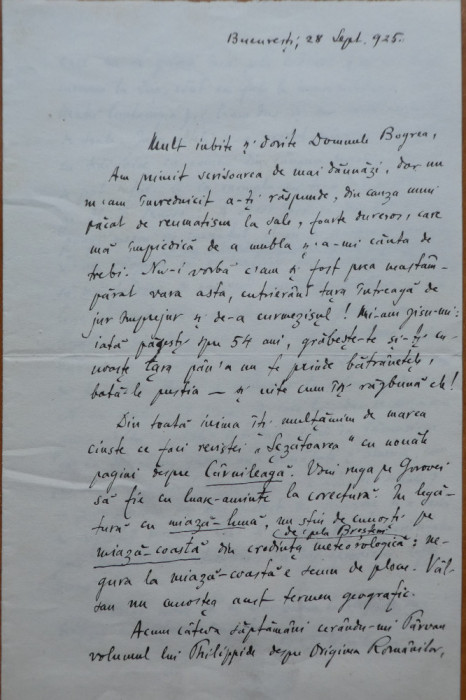 București, 28 Sept. 925.
Mult iubite și dorite Domnule Bogrea,
Am primit scrisoarea de mai dăunăzi, dar nu
m'am învrednicit a-ți răspunde, din cauza unui
păcat de reumatism la șale, foarte dureros, care
mă împiedică de a umbla și a-mi căuta de
trebi. Nu-i vorbă c'am și fost prea neastâm-
părat vara asta, cutrierând țara întreagă de
jur împrejur și de-a curmezișul! Mi-am zis:
iată pășești spre 54 ani, grăbește-te să-ți cu-
noaște țara pân'a nu te prinde bătrânețele,
bată-le pustia — și uite cum își răzbună ele!
Din toată inima îți mulțămim de marea
cinste ce faci revistei „Șezătoarea" cu nouăle
pagini despre Cârnileagă. Voiu ruga pe Gorovei
să fie cu luare-aminte la corectură. În legă-
tură cu miază-lună, nu știu de cunoști pe
de pela Broșteni
miază-coastă din credința meteorologică: ne-
gura la miază-coastă e semn de ploae. Vâl-
san nu cunoștea acest termen geografic.
Acum câteva săptămâni cerându-mi Pârvan
volumul lui Philippide despre Originea Românilor,